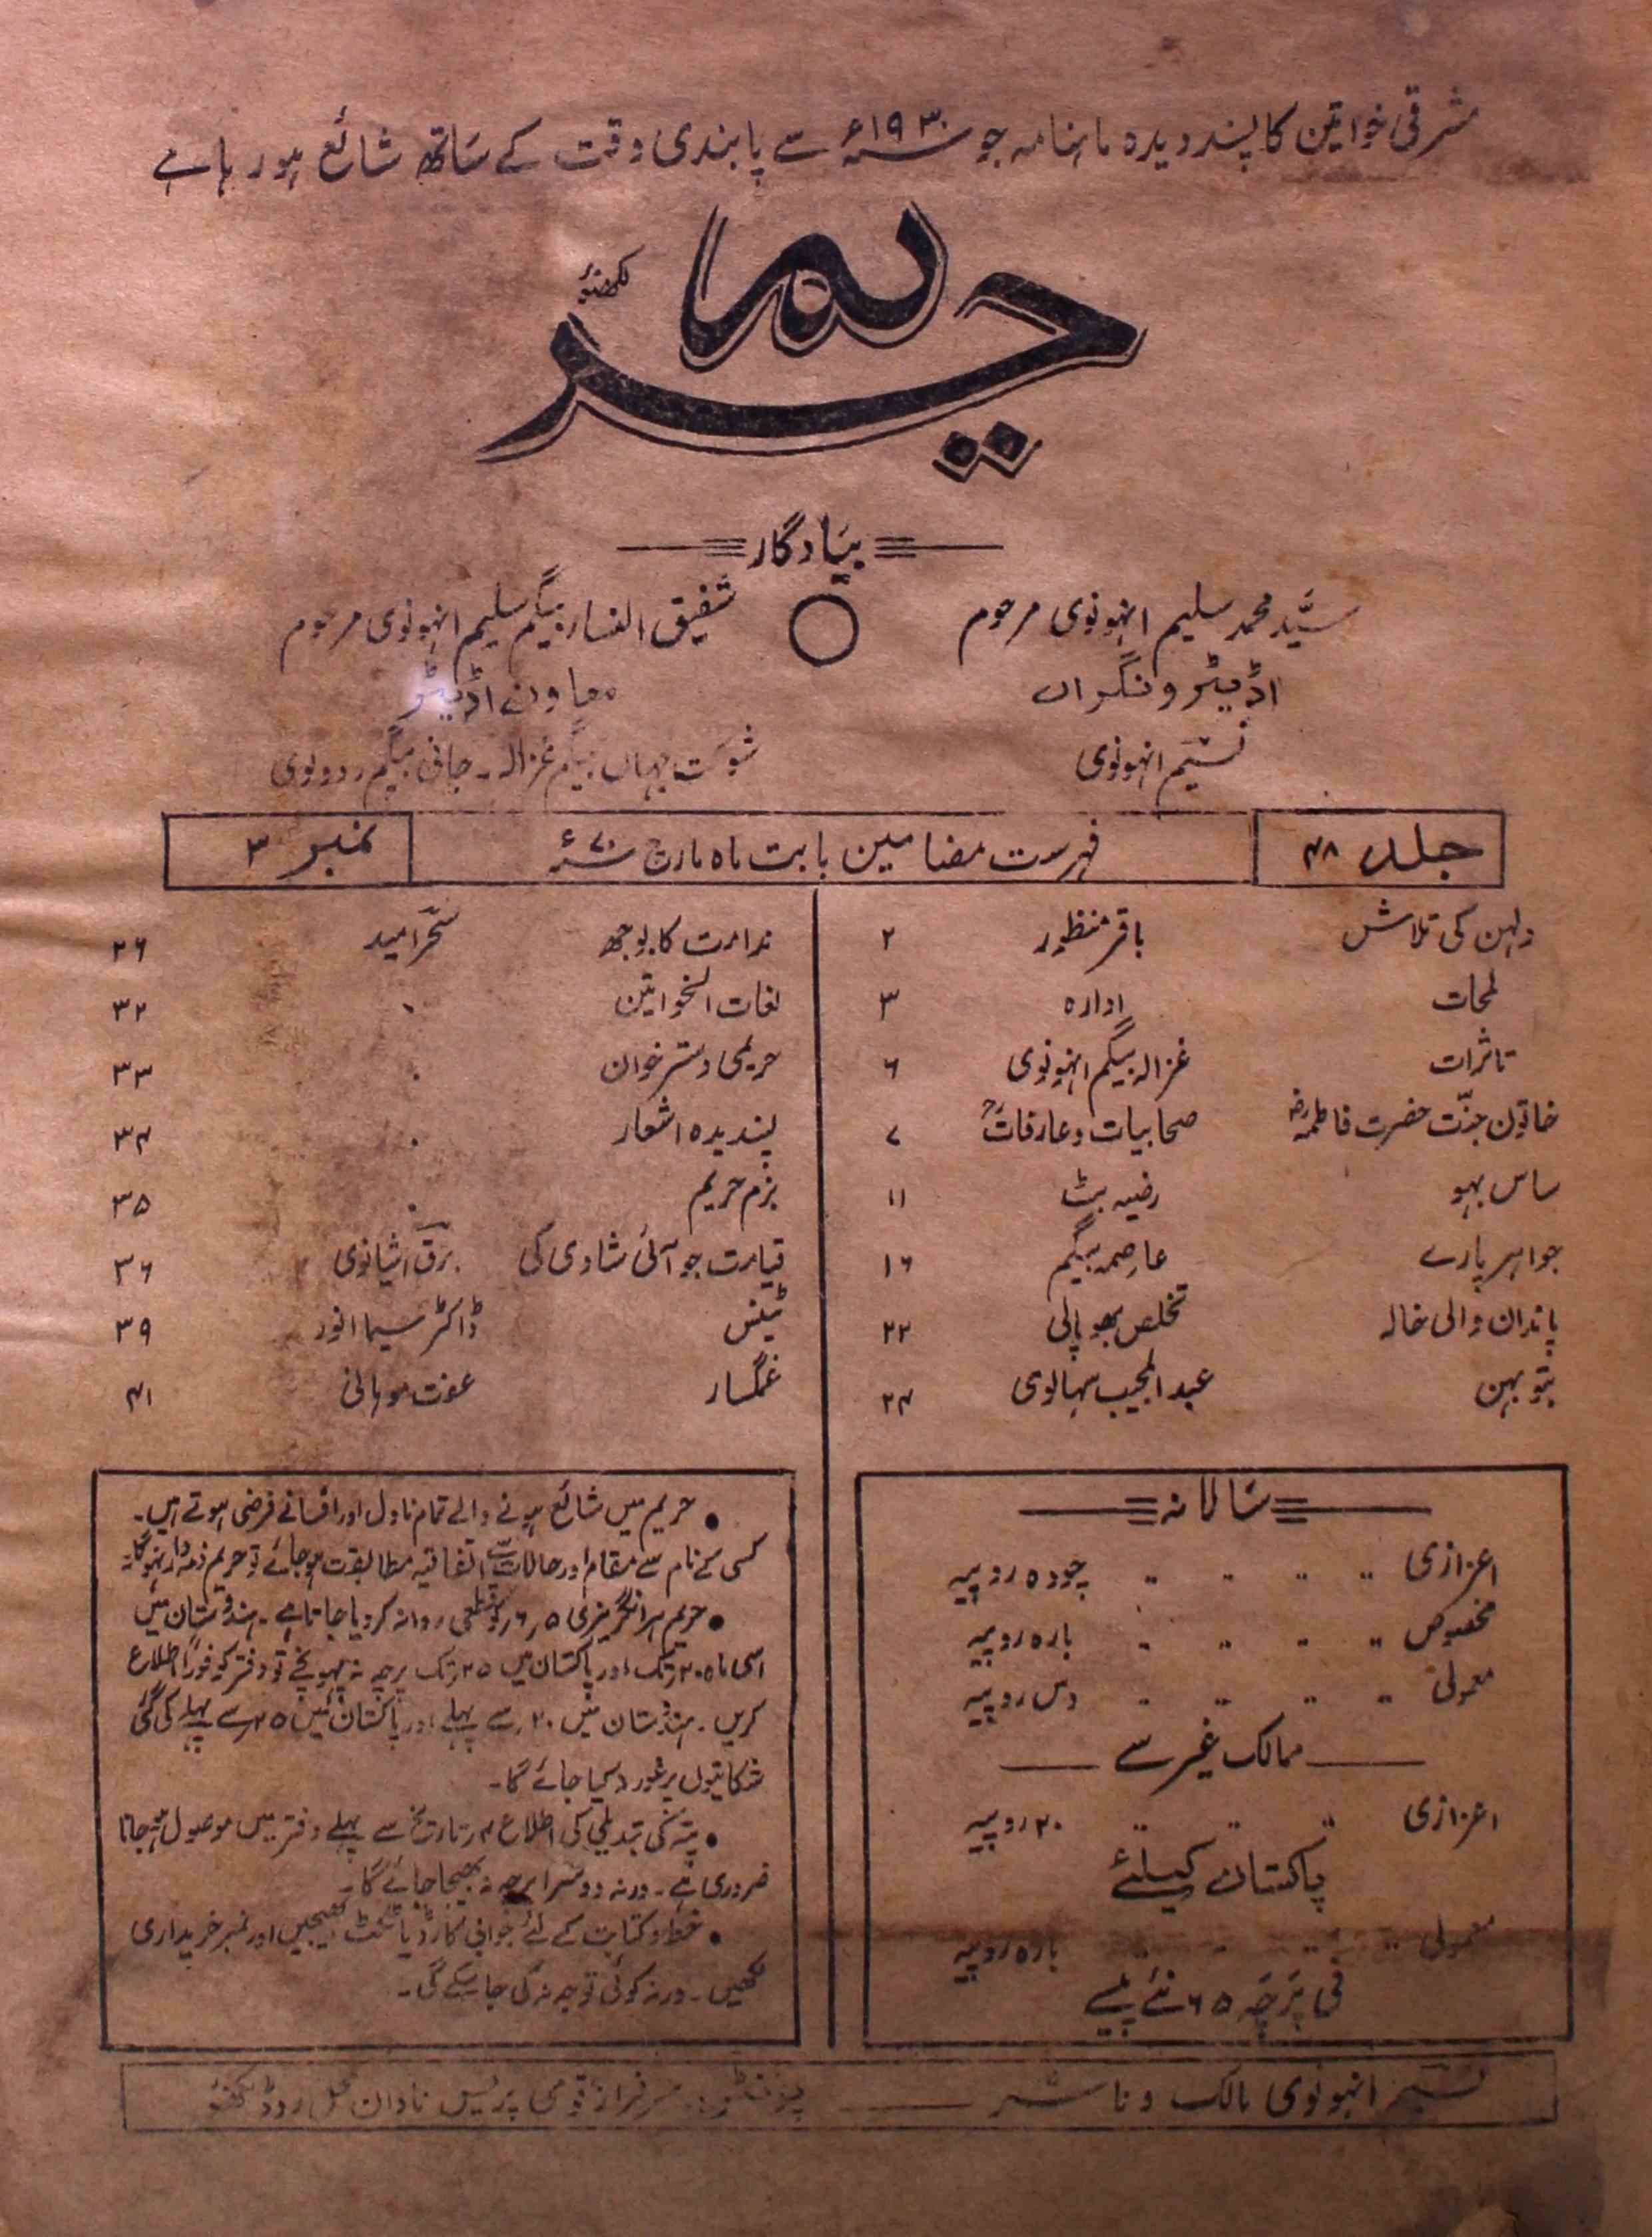 مشرقی خواتین کا پسندیدہ ماہنامہ جو ۱۹۳۰ء سے پابندی وقت کے ساتھ شائع ہو رہا ہے
حریم
لکھنؤ
بیادگار
سیّد محمد سلیم انہونوی مرحوم
شفیق النساء بیگم سلیم انہونوی مرحوم
اڈیٹر و نگراں
معاون اڈیٹر
نسیم انہونوی
شوکت جہاں بیگم غزالہ - جانی بیگم ردولوی
جلد ۴۸
فہرست مضامین بابت ماہ مارچ ۷۰ء
نمبر ۳
دلہن کی تلاش باقر منظور ۲
لمحات ادارہ ۳
تاثرات غزالہ بیگم انہونوی ۶
خاتون جنّت حضرت فاطمہؓ صحابیات و عارفاتؒ ۷
ساس بہو رضیہ بٹ ۱۱
جواہر پارے عاصمہ بیگم ۱۶
پاندان والی خالہ تخلص بھوپالی ۲۲
بتو بہن عبد المجیب سہالوی ۲۴
ندامت کا بوجھ سحر امید ۲۶
لغات الخواتین ۰ ۳۲
حریمی دسترخوان ۰ ۳۳
پسندیدہ اشعار ۰ ۳۴
بزم حریم ۰ ۳۵
قیامت جو آئی شادی کی برق آشیانوی ۳۶
ٹینس ڈاکٹر سیما انور ۳۹
غمگسار عفت موہانی ۴۱
سالانہ
اعزازی .. .. .. .. چودہ روپیہ
مخصوص .. .. .. .. بارہ روپیہ
معمولی .. .. .. .. دس روپیہ
ممالک غیر سے
اعزازی .. .. .. ۲۰ روپیہ
پاکستان کیلئے
معمولی .. .. .. .. بارہ روپیہ
فی پرچہ ۶۵ نئے پیسے
• حریم میں شائع ہونے والے تمام ناول اور افسانے فرضی ہوتے ہیں۔
کسی کے نام سے مقام اور حالات سے اتفاقیہ مطابقت ہو جائے تو حریم ذمہ دار نہ ہوگا۔
• حریم ہر انگریزی ۵ر ۶ر کو قطعی روانہ کر دیا جاتا ہے۔ ہندوستان میں
اسی ماہ ۲۰ر تک اور پاکستان میں ۲۵ر تک پرچہ نہ پہونچے تو دفتر کو فوراً اطلاع
کریں۔ ہندوستان میں ۲۰ر سے پہلے اور پاکستان میں ۲۵ر سے پہلے کی گئی
شکایتوں پر غور نہ کیا جائے گا۔
• پتہ کی تبدیلی کی اطلاع ۴ر تاریخ سے پہلے دفتر میں موصول ہو جانا
ضروری ہے۔ ورنہ دوسرا پرچہ نہ بھیجا جائے گا۔
• خط و کتابت کے لئے جوابی کارڈ یا ٹکٹ بھیجیں اور نمبر خریداری
لکھیں۔ ورنہ کوئی توجہ نہ کی جا سکے گی۔
نسیم انہونوی مالک و ناشر ـــــــ پرنٹر:۔ سرفراز قومی پریس نادان محل روڈ لکھنؤ